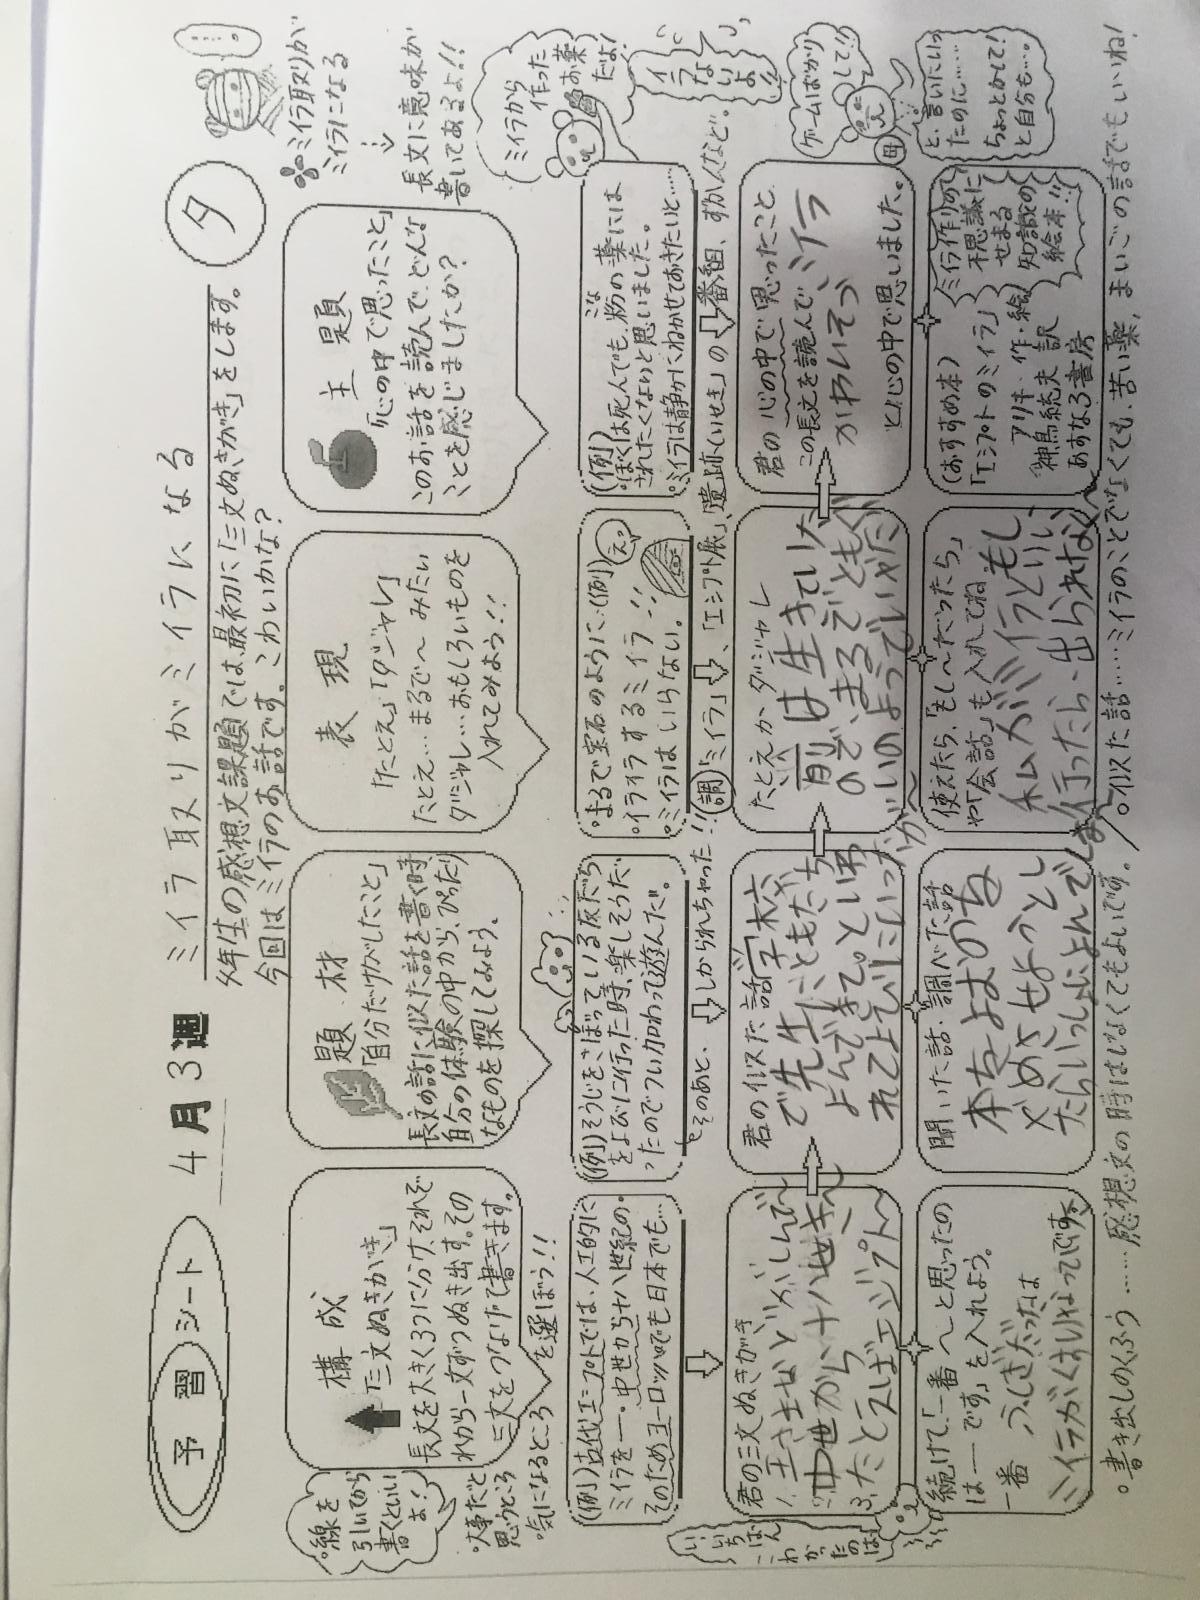 予習シート
4月3週
ミイラ取りがミイラになる
タ
4年生の感想文課題では、最初に「三文ぬきがき」をします。
今回はミイラのお話です。こわいかな?
ミイラ取りが
ミイラになる
長文に意味が
書いてあるよ!!
線を
引いてから
書くといい
よ!
構成
「三文ぬきがき」
長文を大きく3つに分け、それぞ
れから一文ずつぬき出す。その
三文をつなげて書きます。
大事だと
思うところ
気になるところ
を選ぼう!!
題材
「自分だけがしたこと」
長文の話に似た話を書く時
自分の体験の中から、ぴったり
なものを探してみよう。
表現
「たとえ」「ダジャレ」
たとえ…まるで~みたい
ダジャレ…おもしろいものを
入れてみよう!!
主題
「心の中で思ったこと」
このお話を読んで、どんな
ことを感じましたか?
ミイラから
作った
お薬
だよ!
イラ
ない
よ!!
(例)古代エジプトでは、人工的に
ミイラを…。中世から十八世紀の。
そのためヨーロッパでも日本でも…
(例)そうじをさぼっている友だち
をよびに行った時、楽しそうだ
ったのでつい加わって遊んだ。
そのあと、しかられちゃった!!
まるで宝石のように(例)
イライラするミイラ!!
ミイラはいらない。
えっ
(例)
ぼくは死んでも、粉の薬には
こな
されたくないと思いました。
ミイラは静かにねかせておきたいと……
調「ミイラ」、「エジプト展」、遺跡(いせき)の番組、ずかんなど。
君の三文ぬきがき
中世から十八世き~
たとえばエジプト~
いちばん
こわ
かったの
は
君の似た話
学校
で先生に、ともだち
よんできてといわ
れて上とびにいった
が~
たとえか、ダジャレ
前は生きていた
ので、まるでともだ
ちのようでいやだ
君の心の中で思ったこと
この長文を読んでミイラ
かわいそう
と心の中で思いました。
ゲームばかり
して!!
母
と、言いにいっ
たのに……
ちょっとかして!
と自分も…。
続けて「一番~と思ったの
は――です」を入れよう。
一番 ふしぎだったは
聞いた話・調べた話
本をよむのを
やめさせようとし
たらいっしょによんでしま
使えたら、「もし~だったら」
や「会話」も入れてね
(おすすめ本)
「エジプトのミイラ」
アリキ 作・絵
神鳥統夫 訳
あすなろ書房
ミイラ作りの
不思議に
せまる
知識の
絵本!!
書き出しのくふう……感想文の時はしなくてもよいです。
似た話……ミイラのことでなくても、苦い薬、まいごの話でもいいね!